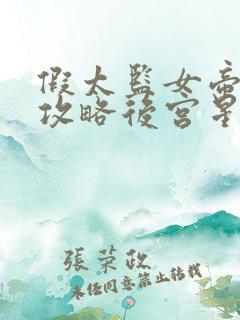 假太監女帝
攻略後宮是
張榮政
未经同意禁止转载